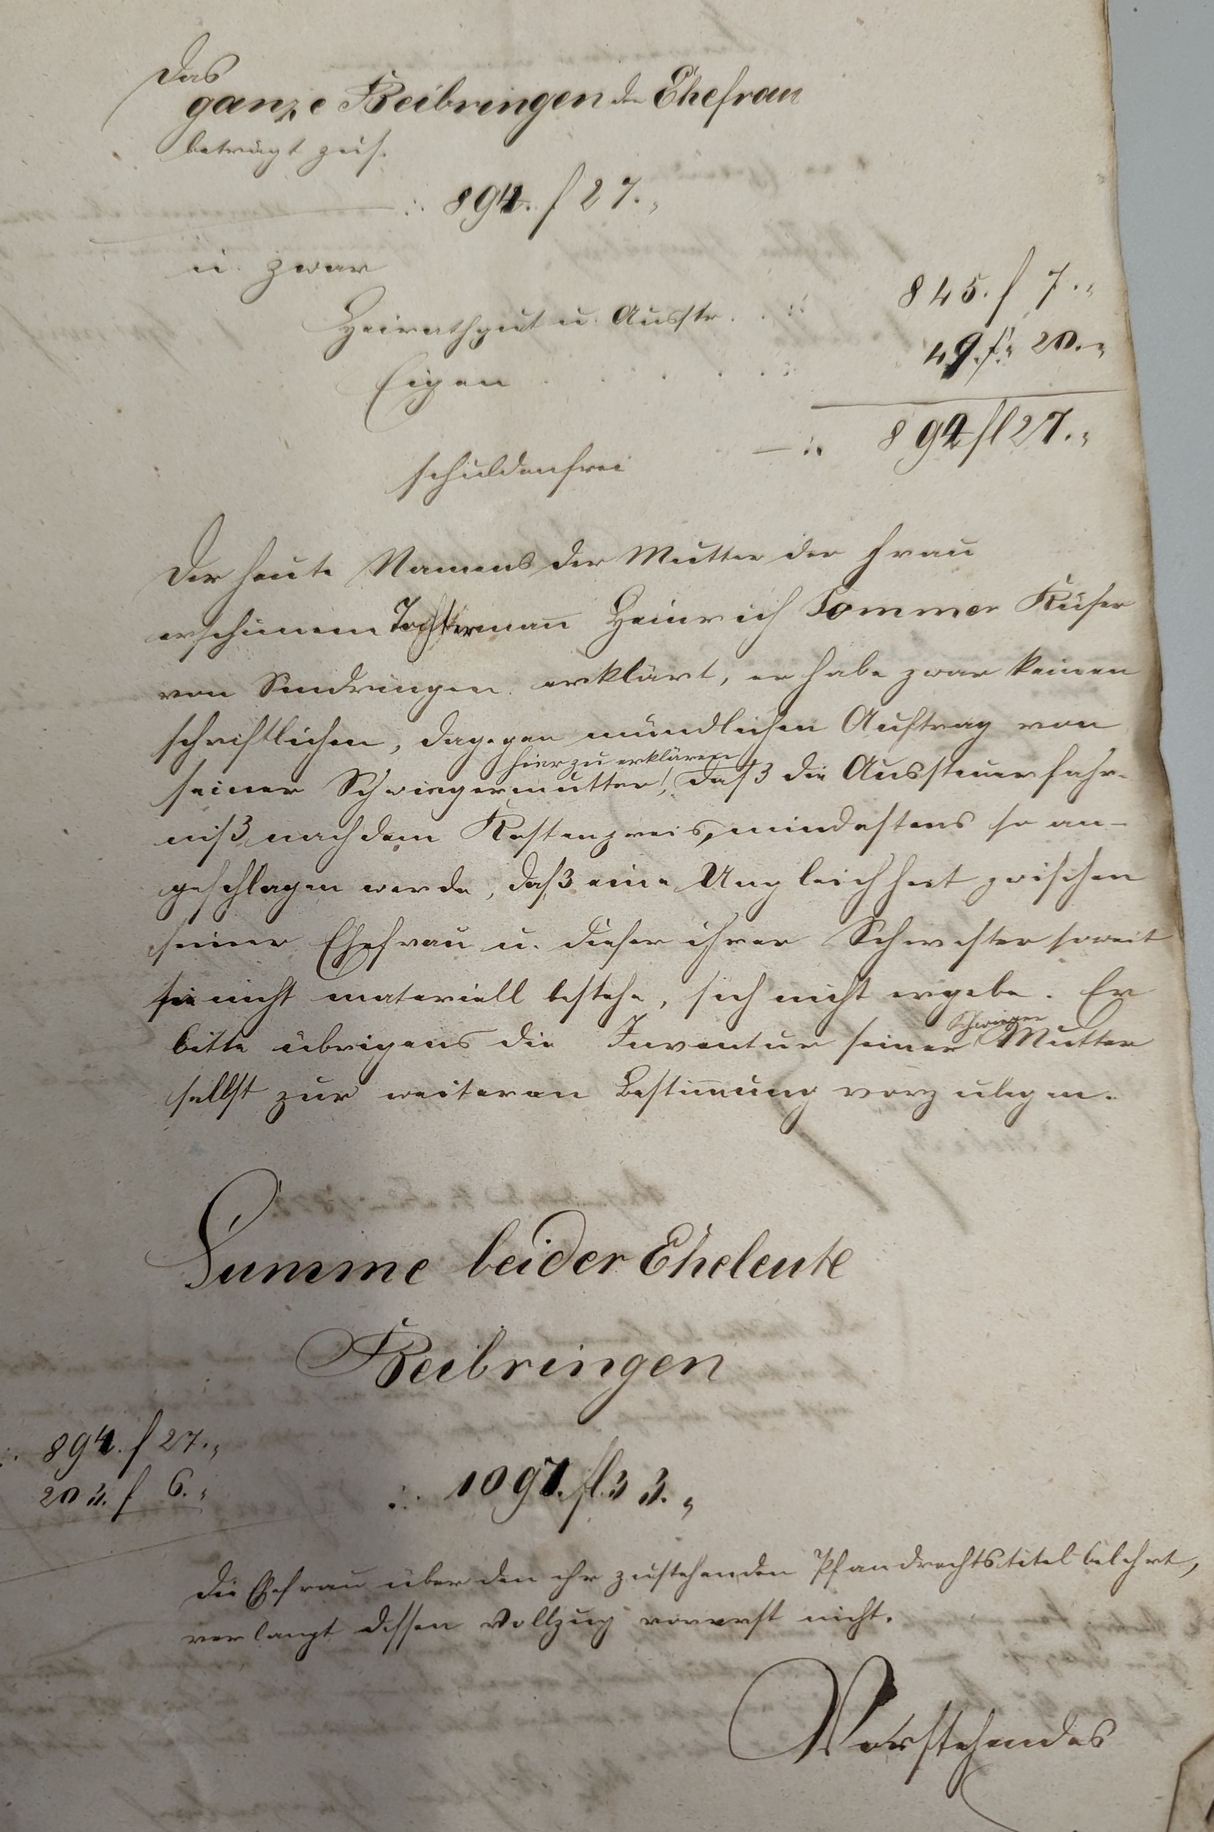 Das
ganze Beibringen der Ehefrau
beträgt zus.
∴ 894. f 27. „
u. zwar
Heirathgut u. Ausstr. . ∴ 845. f 7. „
Eigen . . . . . ∴ 49. f. 20. „
— ∴ 894 fl 27. „
schuldenfrei
Der heute Namens der Mutter der Frau
erschienene Tochtermann Heinrich Sommer Küfer
von Sindringen erklärt, er habe zwar keinen
schriftlichen, dagegen mündlichen Auftrag von
hier zu erklären
seiner Schwiegermutter, daß die Aussteuerfahr-
niß nach dem Kostenpreis, mindestens so an-
geschlagen werde, daß eine Ungleichheit zwischen
seiner Ehefrau u. dieser ihrer Schwester soweit
sie nicht materiell bestehe, sich nicht ergebe. Er
Schwieger
bitte übrigens die Inventur seiner Mutter
selbst zur weiteren Bestimung vorzulegen.
Summe beider Eheleute
Beibringen
∴ 894. f 27. „
203. f 6. „
∴ 1097. fl. 33. „
Die Ehefrau über den ihr zustehenden Pfandrechtstitel belehrt,
verlangt dessen Vollzug vorerst nicht.
Vorstehendes